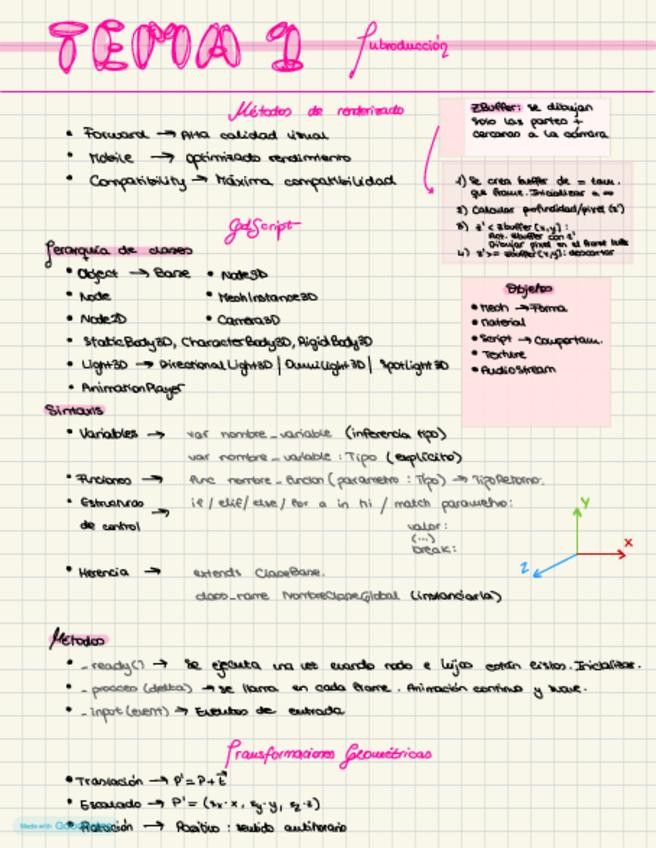 TEMA 1
Introducción
Métodos de renderizado
• Forward → Alta calidad visual
• Mobile → optimizado rendimiento
• Compatibility → Máxima compatibilidad
ZBuffer: se dibujan
solo las partes +
cercanas a la cámara
1) Se crea buffer de = tam.
que frame. Inicializar a ∞
2) Calcular profundidad/pixel (z')
3) z' < zbuffer(x,y):
Act. zbuffer con z'
Dibujar pixel en el frame buffer
4) z' >= zbuffer(x,y): descartar
GdScript
Jerarquía de clases
• Object → Base • Node3D
• Node • MeshInstance3D
• Node2D • Camera3D
• StaticBody3D, CharacterBody3D, RigidBody3D
• Light3D → DirectionalLight3D / OmniLight3D / SpotLight3D
• AnimationPlayer
Objetos
• Mesh → Forma
• Material
• Script → Comportam.
• Texture
• AudioStream
Sintaxis
• Variables → var nombre_variable (inferencia tipo)
var nombre_variable : Tipo (explícito)
• Funciones → func nombre_funcion (parametro : Tipo) → TipoRetorno:
• Estructuras → if / elif / else / for a in hi / match parametro:
de control valor:
(...)
break:
• Herencia → extends ClaseBase.
class_name NombreClaseGlobal (instanciarla)
Y
X
Z
Métodos
• _ready() → Se ejecuta una vez cuando nodo e hijos están listos. Inicializar.
• _process(delta) → se llama en cada frame. Animación continua y suave.
• _input(event) → Eventos de entrada
Transformaciones Geométricas
• Traslación → P' = P + t⃗
• Escalado → P' = (sx·x, sy·y, sz·z)
• Rotación → Positivo : sentido antihorario
Made with